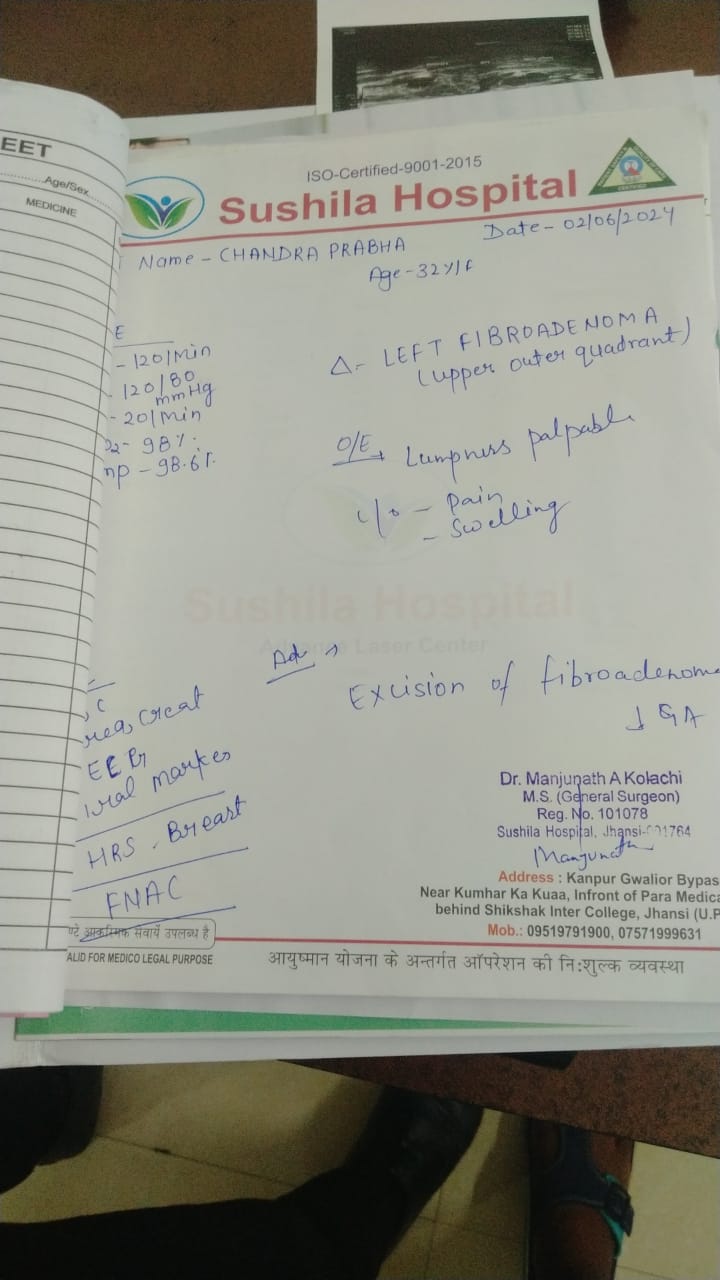 EET
Age/Sex
MEDICINE
ISO-Certified-9001-2015
Sushila Hospital
Name - CHANDRA PRABHA
Date - 02/06/2024
Age - 32 y/f
E
- 120/Min
120/80
mmHg
- 20/Min
98%
mp - 98.6f.
Δ - LEFT FIBROADENOMA
(upper outer quadrant)
O/E → Lumpness palpable
c/o - Pain
- Swelling
Sushila Hospital
Advance Laser Center
Adv →
Excision of fibroadenoma
↓ GA
, C
rea, Creat
viral markes
HRS . Breast
FNAC
Dr. Manjunath A Kolachi
M.S. (General Surgeon)
Reg. No. 101078
Sushila Hospital, Jhansi-
Manjunath
Address : Kanpur Gwalior Bypas
Near Kumhar Ka Kuaa, Infront of Para Medica
behind Shikshak Inter College, Jhansi (U.P
Mob.: 09519791900, 07571999631
आकस्मिक सेवायें उपलब्ध है
ALID FOR MEDICO LEGAL PURPOSE
आयुष्मान योजना के अन्तर्गत ऑपरेशन की नि:शुल्क व्यवस्था